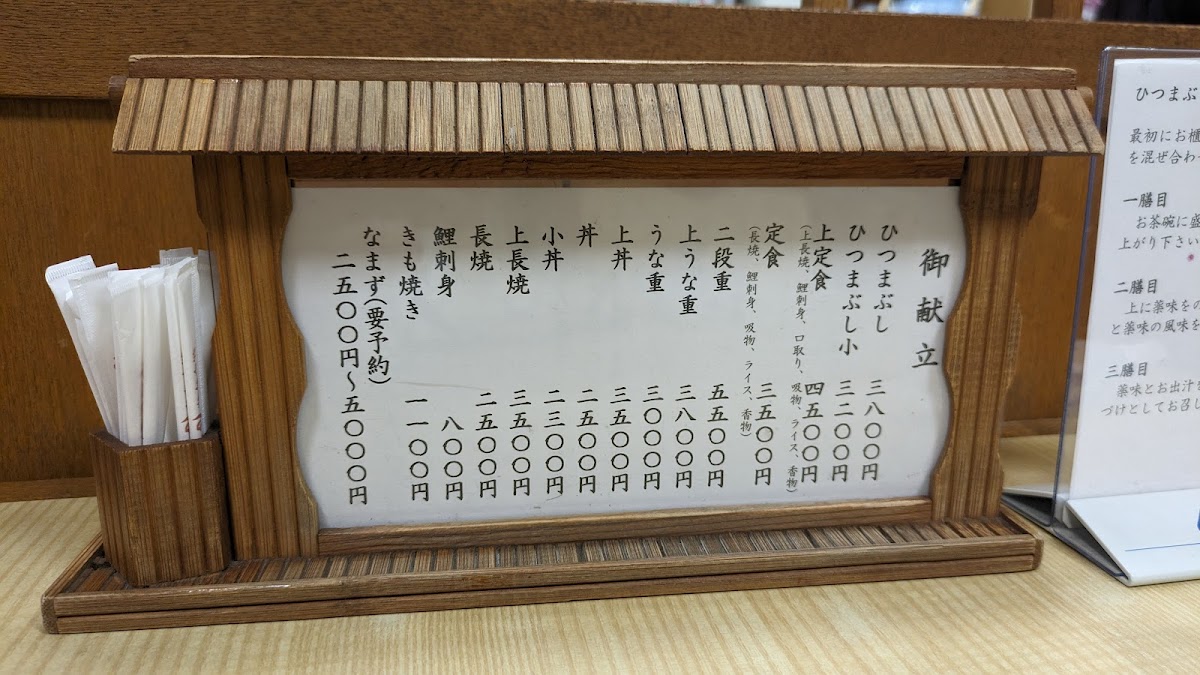 御献立
ひつまぶし 三八〇〇円
ひつまぶし小 三二〇〇円
上定食 四五〇〇円
(上長焼、鯉刺身、口取り、吸物、ライス、香物)
定食 三五〇〇円
(長焼、鯉刺身、吸物、ライス、香物)
二段重 五五〇〇円
上うな重 三八〇〇円
うな重 三〇〇〇円
上丼 三五〇〇円
丼 二五〇〇円
小丼 二三〇〇円
上長焼 三五〇〇円
長焼 二五〇〇円
鯉刺身 八〇〇円
きも焼き 一一〇〇円
なまず(要予約)
二五〇〇円〜五〇〇〇円
ひつまぶ
最初にお櫃
を混ぜ合わ
一膳目
お茶碗に盛
上がり下さい
二膳目
上に薬味をの
と薬味の風味を
三膳目
薬味とお出汁
づけとしてお召し